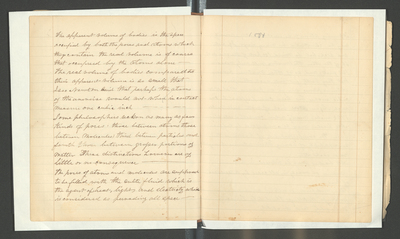 The apparent volume of bodies is the space
occupied by both the pores and atoms which
the real volume is of course
that occupied by the atoms alone
The real volume of bodies compared to
their apparent volume is so small that
said that perhaps the atoms
of the universe would not
one cubic inch
Some philosophers make as many as four
kinds of pores. those between atoms those
between Molecules those between particles and
lastly those between grosser portions of
matter These distinctions however are of
little or no consequence
The pores of atoms and molecules are supposed
to be filled with the subtle fluid which is
the agent of heat, light & and electricity which
is considered as pervading all space